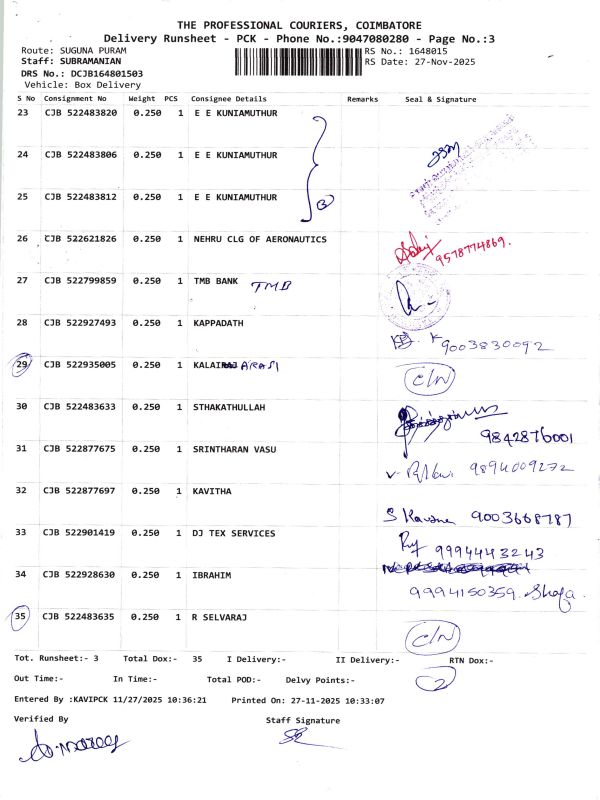 THE PROFESSIONAL COURIERS, COIMBATORE
Delivery Runsheet - PCK - Phone No.:9047080280 - Page No.:3
Route: SUGUNA PURAM RS No.: 1648015
Staff: SUBRAMANIAN RS Date: 27-Nov-2025
DRS No.: DCJB164801503
Vehicle: Box Delivery
S No Consignment No Weight PCS Consignee Details Remarks Seal & Signature
23 CJB 522483820 0.250 1 E E KUNIAMUTHUR
24 CJB 522483806 0.250 1 E E KUNIAMUTHUR
25 CJB 522483812 0.250 1 E E KUNIAMUTHUR 3
26 CJB 522621826 0.250 1 NEHRU CLG OF AERONAUTICS
9578774869.
27 CJB 522799859 0.250 1 TMB BANK TMB
28 CJB 522927493 0.250 1 KAPPADATH
K 9003830092
29 CJB 522935005 0.250 1 KALAI ARASI C/N
30 CJB 522483633 0.250 1 STHAKATHULLAH
9842876001
31 CJB 522877675 0.250 1 SRINTHARAN VASU
9894009272
32 CJB 522877697 0.250 1 KAVITHA
9003668787
33 CJB 522901419 0.250 1 DJ TEX SERVICES
9994443243
34 CJB 522928630 0.250 1 IBRAHIM
9994150359.
35 CJB 522483635 0.250 1 R SELVARAJ C/N
Tot. Runsheet:- 3 Total Dox:- 35 I Delivery:- II Delivery:- RTN Dox:-
Out Time:- In Time:- Total POD:- Delvy Points:- 2
Entered By :KAVIPCK 11/27/2025 10:36:21 Printed On: 27-11-2025 10:33:07
Verified By Staff Signature